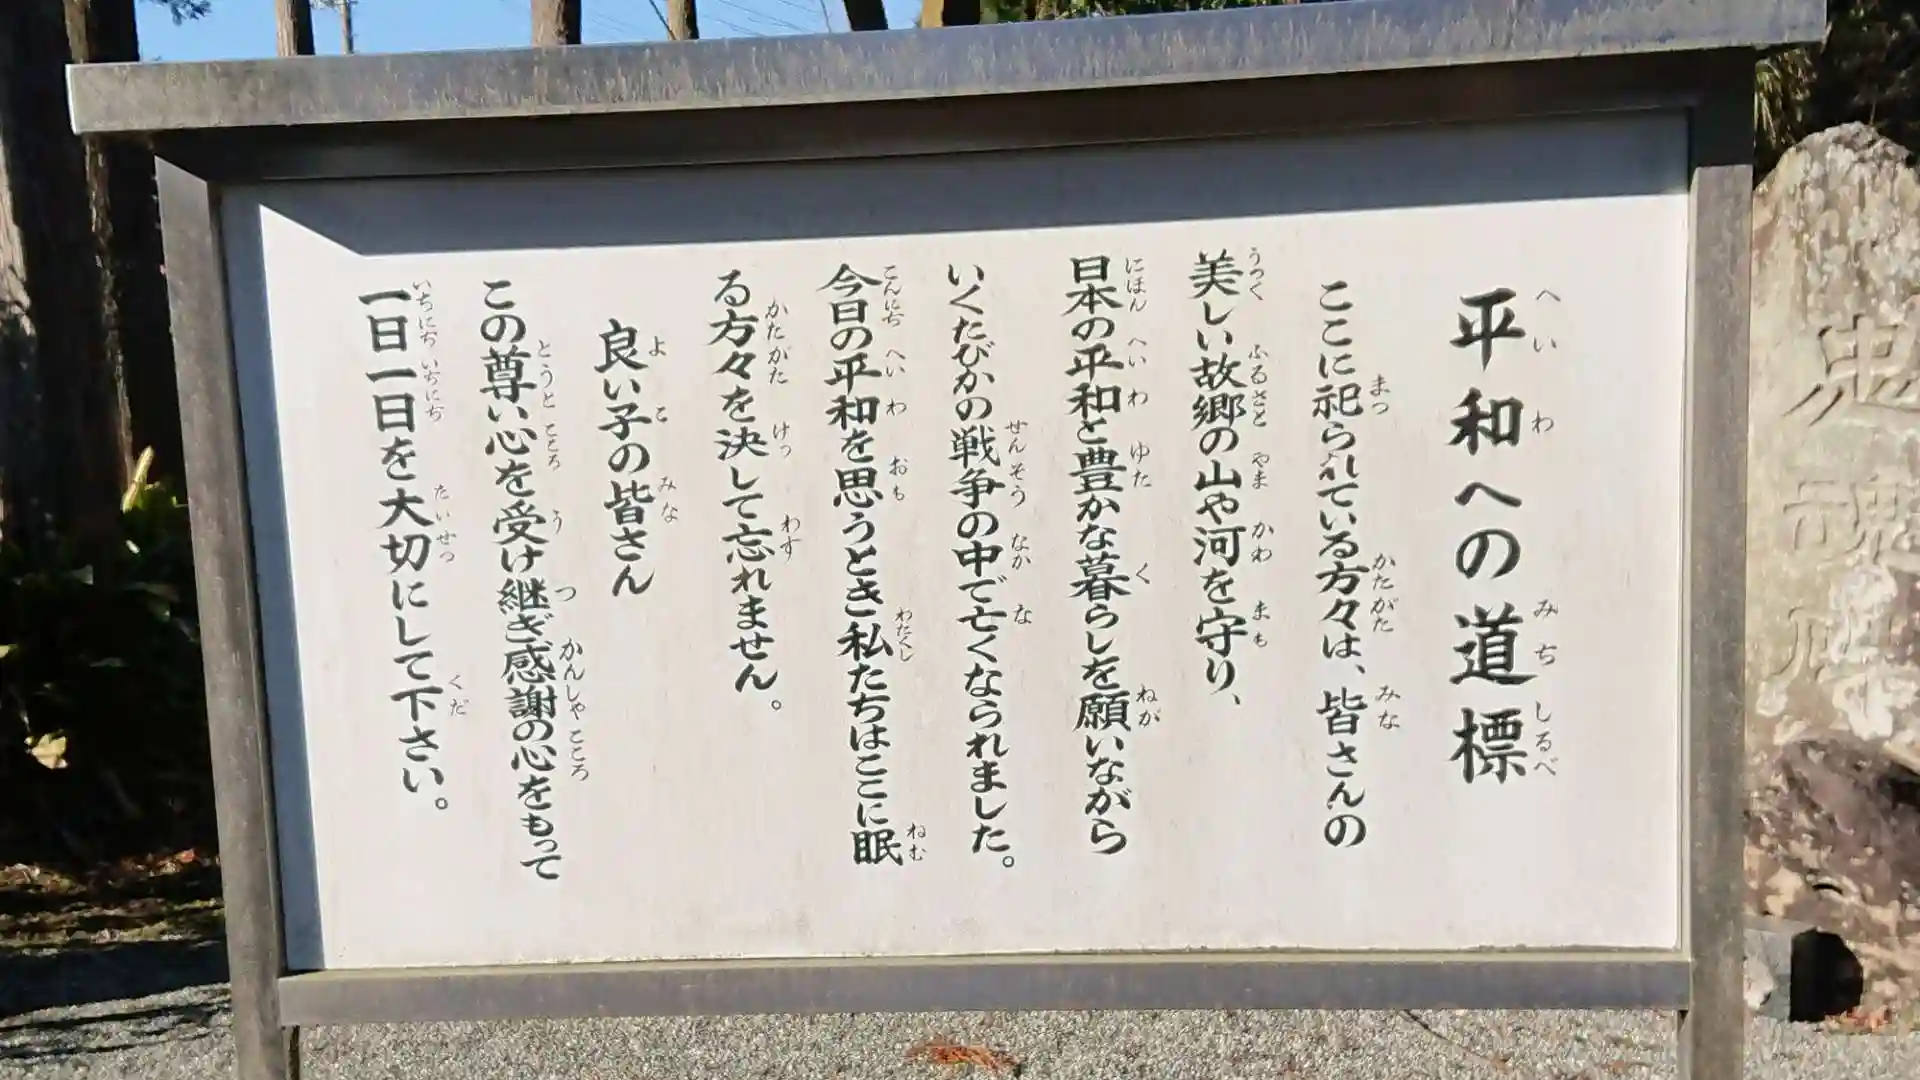 平和への道標
ここに祀られている方々は、皆さんの
美しい故郷の山や河を守り、
日本の平和と豊かな暮らしを願いながら
いくたびかの戦争の中で亡くなられました。
今日の平和を思うとき私たちはここに眠
る方々を決して忘れません。
良い子の皆さん
この尊い心を受け継ぎ感謝の心をもって
一日一日を大切にして下さい。